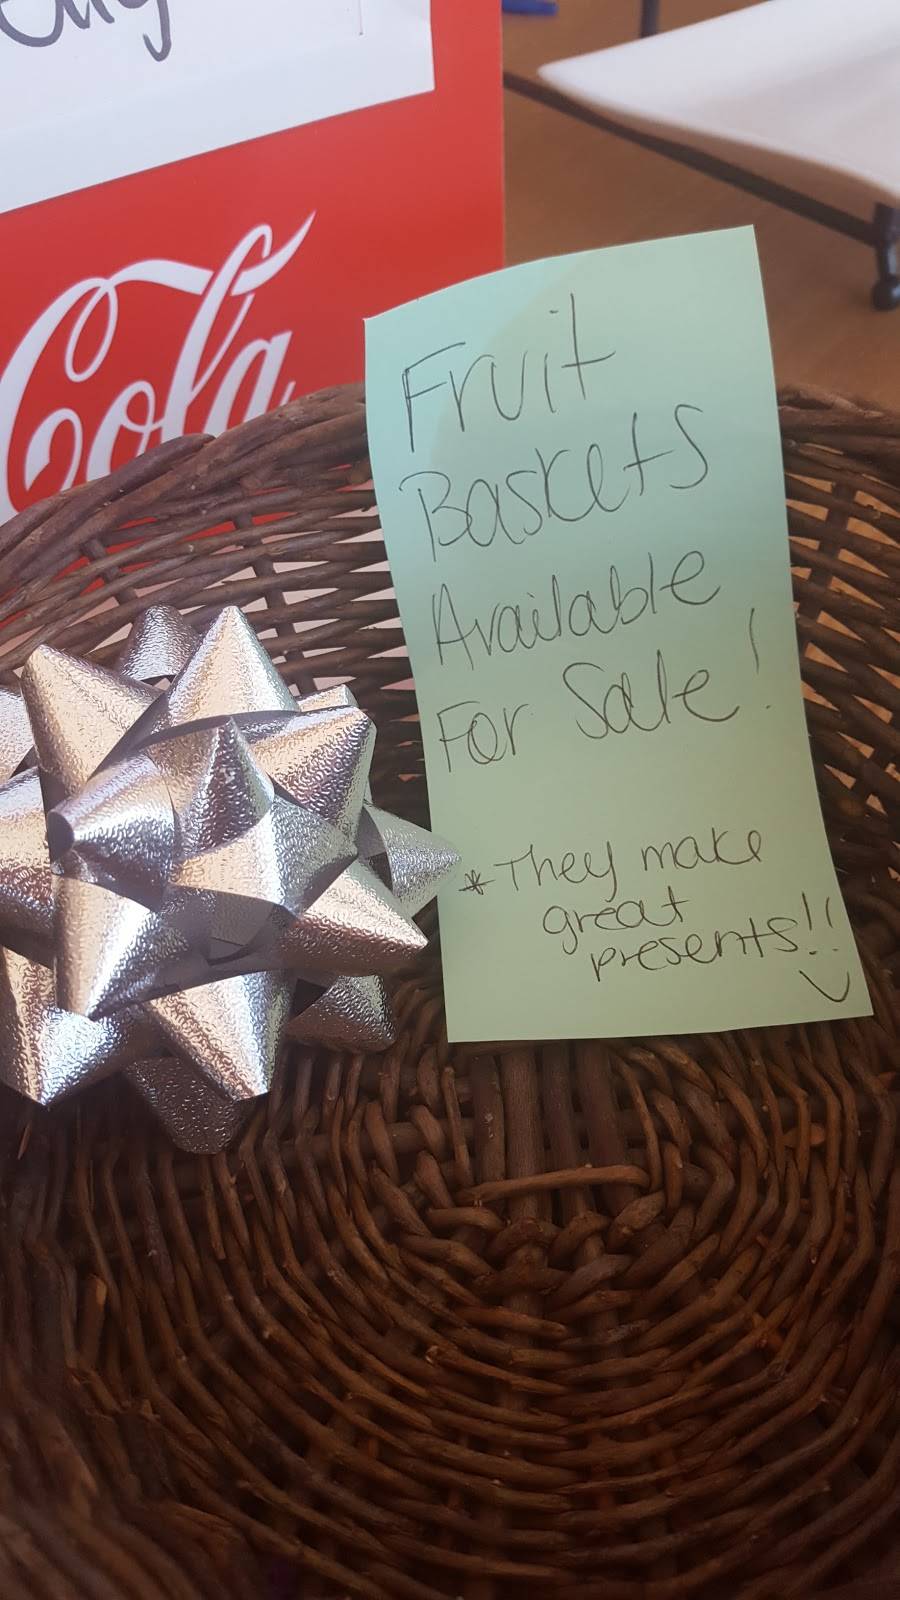 Cola
Fruit
Baskets
Available
For Sale!
*They make
great
presents!!